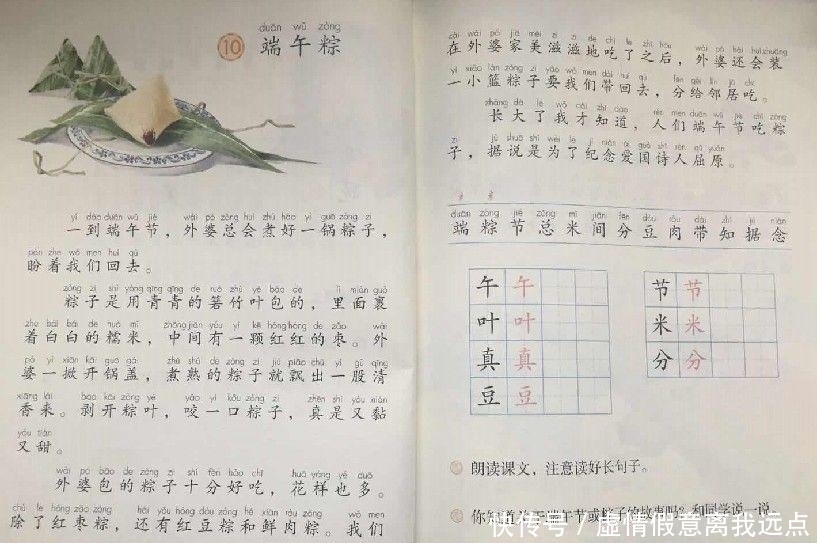 duān wǔ zòng
10 端午粽
yí dào duān wǔ jié wài pó zǒng huì zhǔ hǎo yì guō zòng zi
一到端午节，外婆总会煮好一锅粽子，
pàn zhe wǒ men huí qù
盼着我们回去。
zòng zi shì yòng qīng qīng de ruò zhú yè bāo de lǐ miàn guǒ
粽子是用青青的箬竹叶包的，里面裹
zhe bái bái de nuò mǐ zhōng jiān yǒu yì kē hóng hóng de zǎo wài
着白白的糯米，中间有一颗红红的枣。外
pó yì xiān kāi guō gài zhǔ shú de zòng zi jiù piāo chū yì gǔ qīng
婆一掀开锅盖，煮熟的粽子就飘出一股清
xiāng lái bāo kāi zòng yè yǎo yì kǒu zòng zi zhēn shì yòu nián
香来。剥开粽叶，咬一口粽子，真是又黏
yòu tián
又甜。
wài pó bāo de zòng zi shí fēn hǎo chī huā yàng yě duō
外婆包的粽子十分好吃，花样也多。
chú le hóng zǎo zòng hái yǒu hóng dòu zòng hé xiān ròu zòng wǒ men
除了红枣粽，还有红豆粽和鲜肉粽。我们
zài wài pó jiā měi zī zī de chī le zhī hòu wài pó hái huì zhuāng
在外婆家美滋滋地吃了之后，外婆还会装
yì xiǎo lán zòng zi yào wǒ men dài huí qù fēn gěi lín jū chī
一小篮粽子要我们带回去，分给邻居吃。
zhǎng dà le wǒ cái zhī dào rén men duān wǔ jié chī zòng
长大了我才知道，人们端午节吃粽
zi jù shuō shì wèi le jì niàn ài guó shī rén qū yuán
子，据说是为了纪念爱国诗人屈原。
duān zòng jié zǒng mǐ jiān fēn dòu ròu dài zhī jù niàn
端粽节总米间分豆肉带知据念
午午 节节
叶叶 米米
真真 分分
豆豆
朗读课文，注意读好长句子。
你知道关于端午节或粽子的故事吗？和同学说一说
快传号 / 虚情假意离我远点